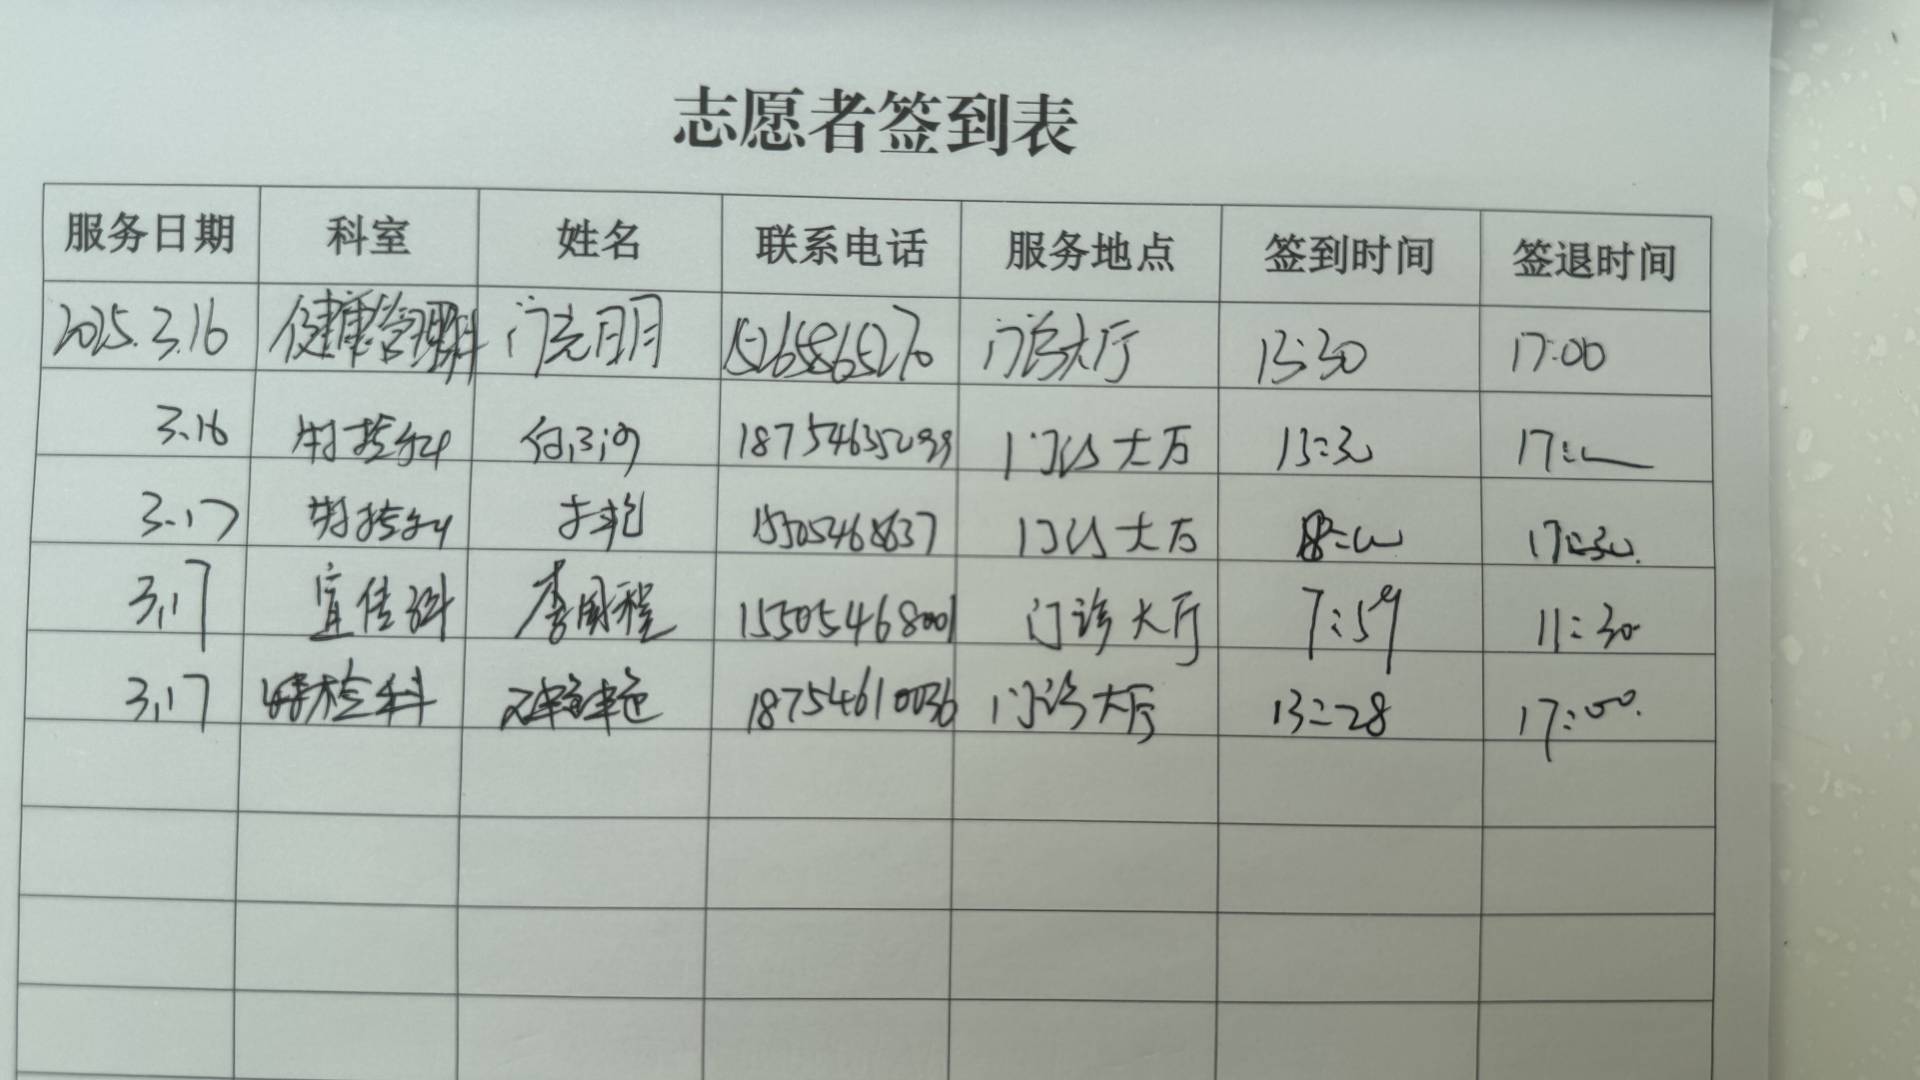 志愿者签到表
服务日期 科室 姓名 联系电话 服务地点 签到时间 签退时间
2025.3.16 健康管理科 闫亮月月 15265865270 门诊大厅 13:30 17:00
3.16 门诊大厅 13:30 17:00
3.17 15505468637 门诊大厅 8:00 17:30
3.17 宣传科 李国程 15505468001 门诊大厅 7:59 11:30
3.17 特检科 18754610036 门诊大厅 13:28 17:00